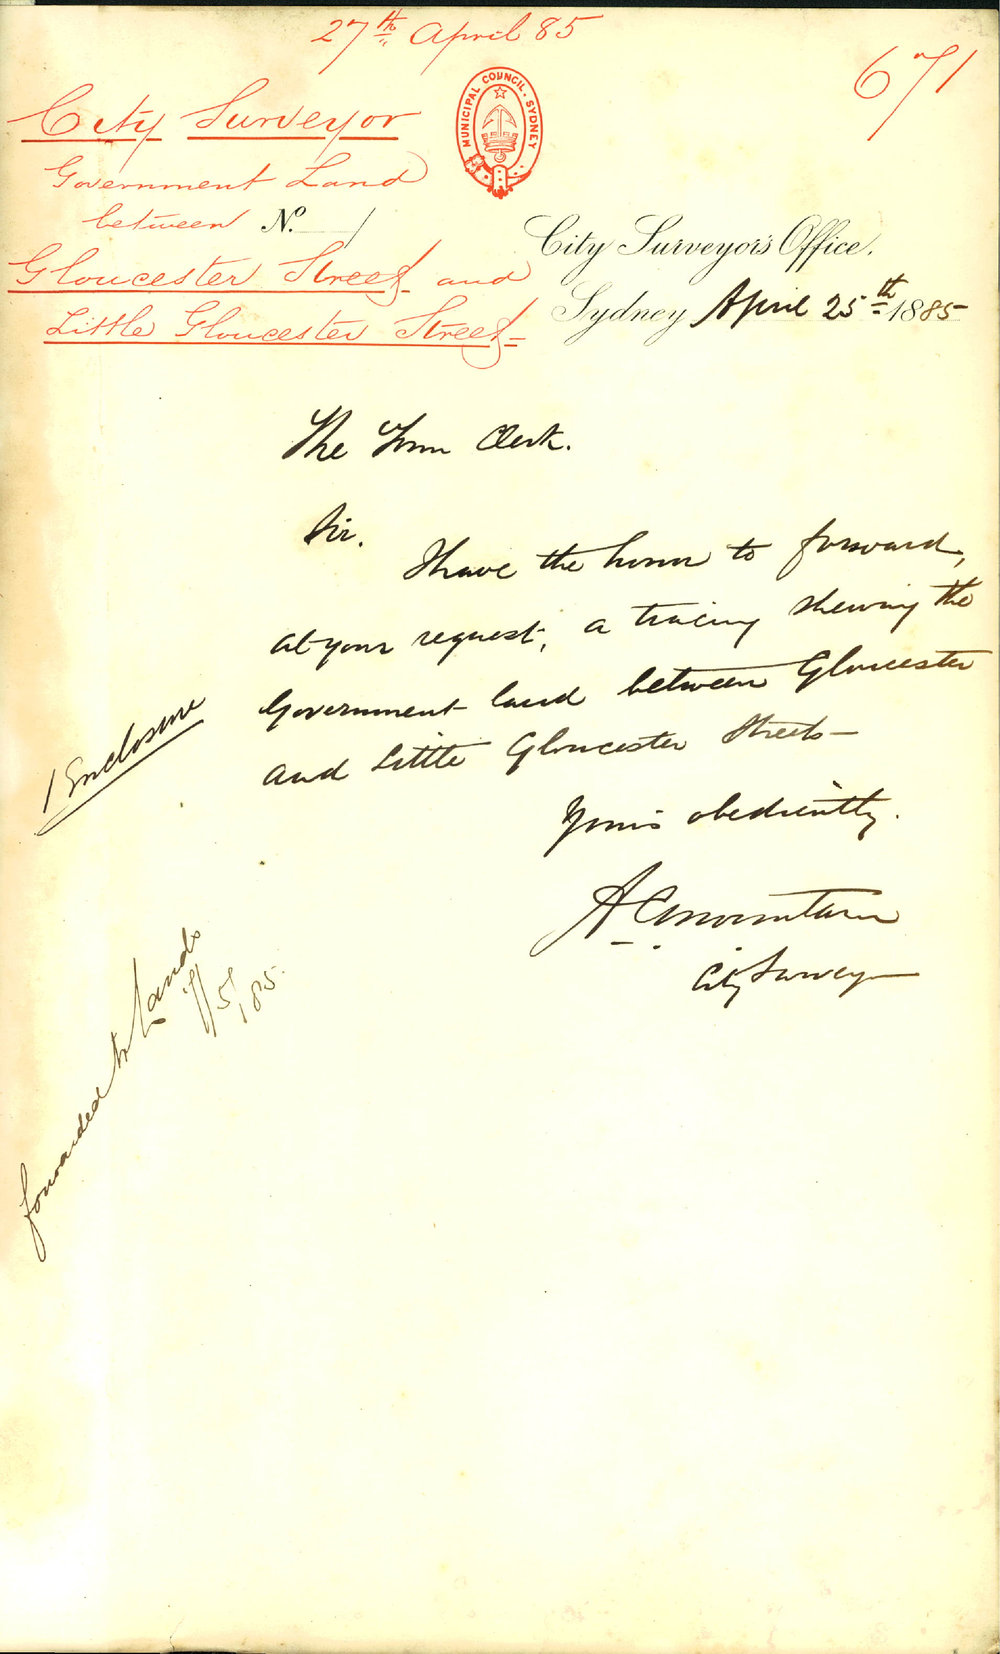 27th April 85
671
City Surveyor
Government Land
between
Gloucester Street and
Little Gloucester Street
MUNICIPAL COUNCIL. SYDNEY
No.
City Surveyor's Office.
Sydney April 25th 1885
The Town Clerk.
Sir.
I have the honor to forward,
at your request, a tracing shewing the
Government land between Gloucester
and Little Gloucester Streets—
1 Enclosure
Yours obediently.
A C Mountain
City Surveyor
forwarded to Lands
/5/85.